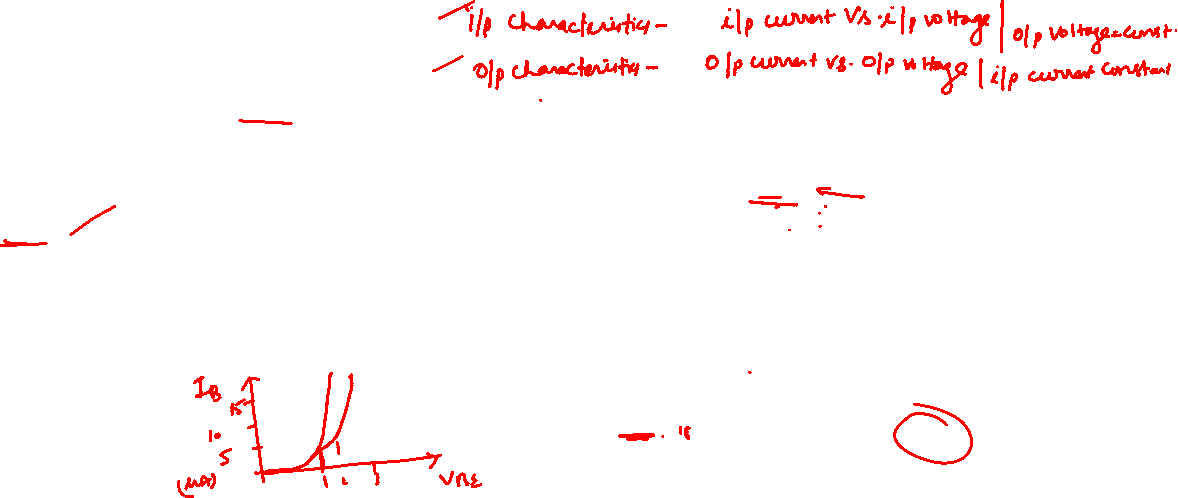 i/p characteristics - i/p current vs. i/p voltage | o/p voltage = const.
o/p characteristics - o/p current vs. o/p voltage | i/p current constant
IB
15
10
5
(μA)
VBE